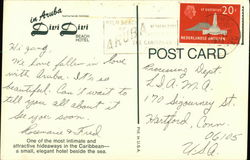 in Aruba
Divi Divi
BEACH
HOTEL
ARUBA
20c
NEDERLANDSE ANTILLEN
POST CARD
Hi gang,
We have fallen in love
with Aruba. It's so
beautiful. Can't wait to
tell you all about it
See you soon.
& Fred
Accounting Dept.
L.I.A.M.A.
170 Sigourney St.
Hartford, Conn.
06105
U.S.A.
One of the most intimate and
attractive hideaways in the Caribbean—
a small, elegant hotel beside the sea.